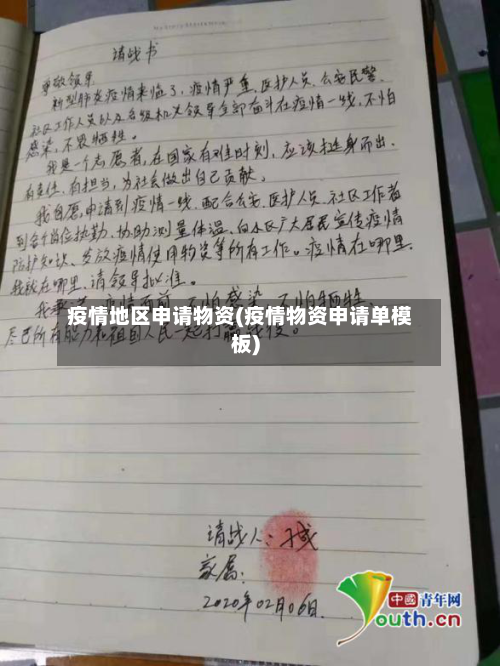 请战书
尊敬领导
新型肺炎疫情来临了，疫情严重，医护人员、公安民警、
社区工作人员以及各级机关领导全部奋斗在疫情一线，不怕
感染，不畏牺牲。
我是一个志愿者，在国家有难时刻，应该挺身而出，
有责任，有担当，为社会做出自己贡献。
我自愿申请到疫情一线，配合公安、医护人员、社区工作者
到各个岗位执勤、协助测量体温、向小区广大居民宣传疫情
防护知识、发放疫情使用物资等所有工作。疫情在哪里
我就在哪里，请领导批准。
疫情地区申请物资(疫情物资申请单模
板)
尽己所有能力和祖国人民一起打
请战人：
家属：
2020年02月06日
中國青年网
Youth.cn